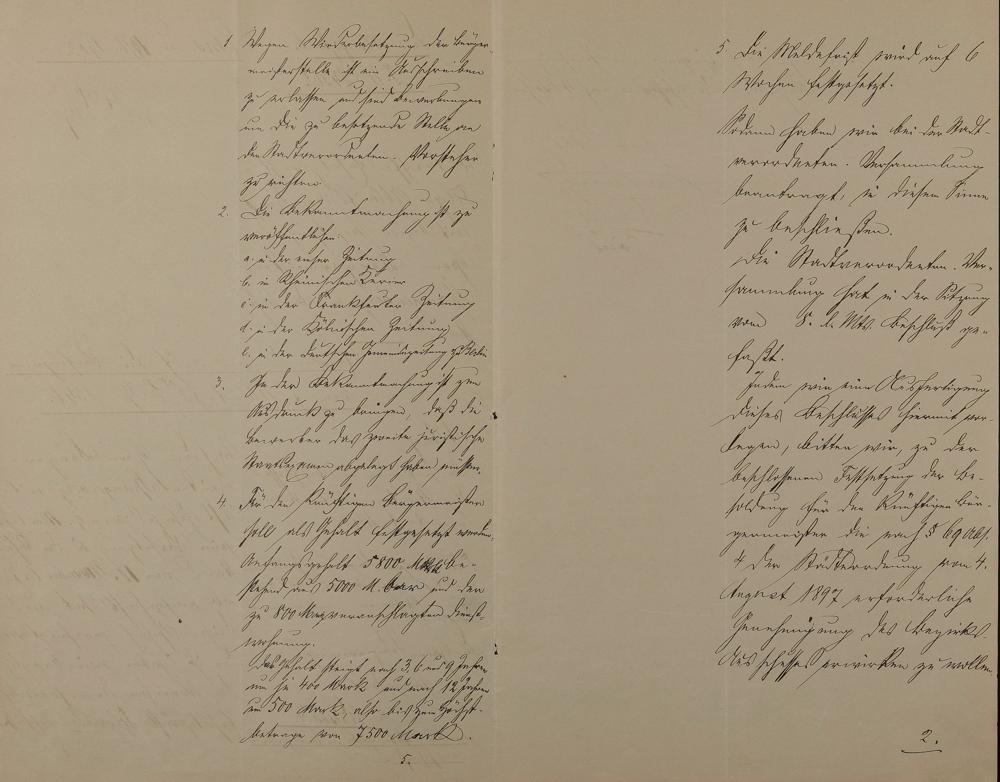 1. Wegen Wiederbesetzung der Bürger-
meisterstelle ist ein Ausschreiben
zu erlassen und sind Bewerbungen
um die zu besetzende Stelle an
den Stadtverordneten-Vorsteher
zu richten.
2. Die Bekanntmachung ist zu
veröffentlichen:
a. in der Zeitung
b. im Rheinischen Kurier
c. in der Frankfurter Zeitung
d. in der Kölnischen Zeitung
e. in der deutschen Gemeindezeitung zu Berlin
3. In der Bekanntmachung ist zum
Ausdruck zu bringen, daß die
Bewerber das zweite juristische
Staatsexamen abgelegt haben müssen.
4. Für den künftigen Bürgermeister
soll als Gehalt festgesetzt werden:
Anfangsgehalt 5800 Mark be-
stehend aus 5000 M. baar und der
zu 800 Mark veranschlagten Dienst-
wohnung.
Das Gehalt steigt nach 3, 6 und 9 Jahren
um je 400 Mark und nach 12 Jahren
um 500 Mark, also bis zum Höchst-
betrage von 7500 Mark.
5.
5. Die Meldefrist wird auf 6
Wochen festgesetzt.
Sodann haben wir bei der Stadt-
verordneten-Versammlung
beantragt, in diesem Sinne
zu beschließen.
Die Stadtverordneten-Ver-
sammlung hat in der Sitzung
vom 8. d. Mts. Beschluß ge-
faßt.
Indem wir eine Ausfertigung
dieses Beschlusses hiermit vor-
legen, bitten wir, zu der
beschlossenen Festsetzung der Be-
soldung für den künftigen Bür-
germeister die nach § 69 Abs.
4 der Städteordnung vom 4.
August 1897 erforderliche
Genehmigung des Bezirks-
Ausschusses erwirken zu wollen.
2.